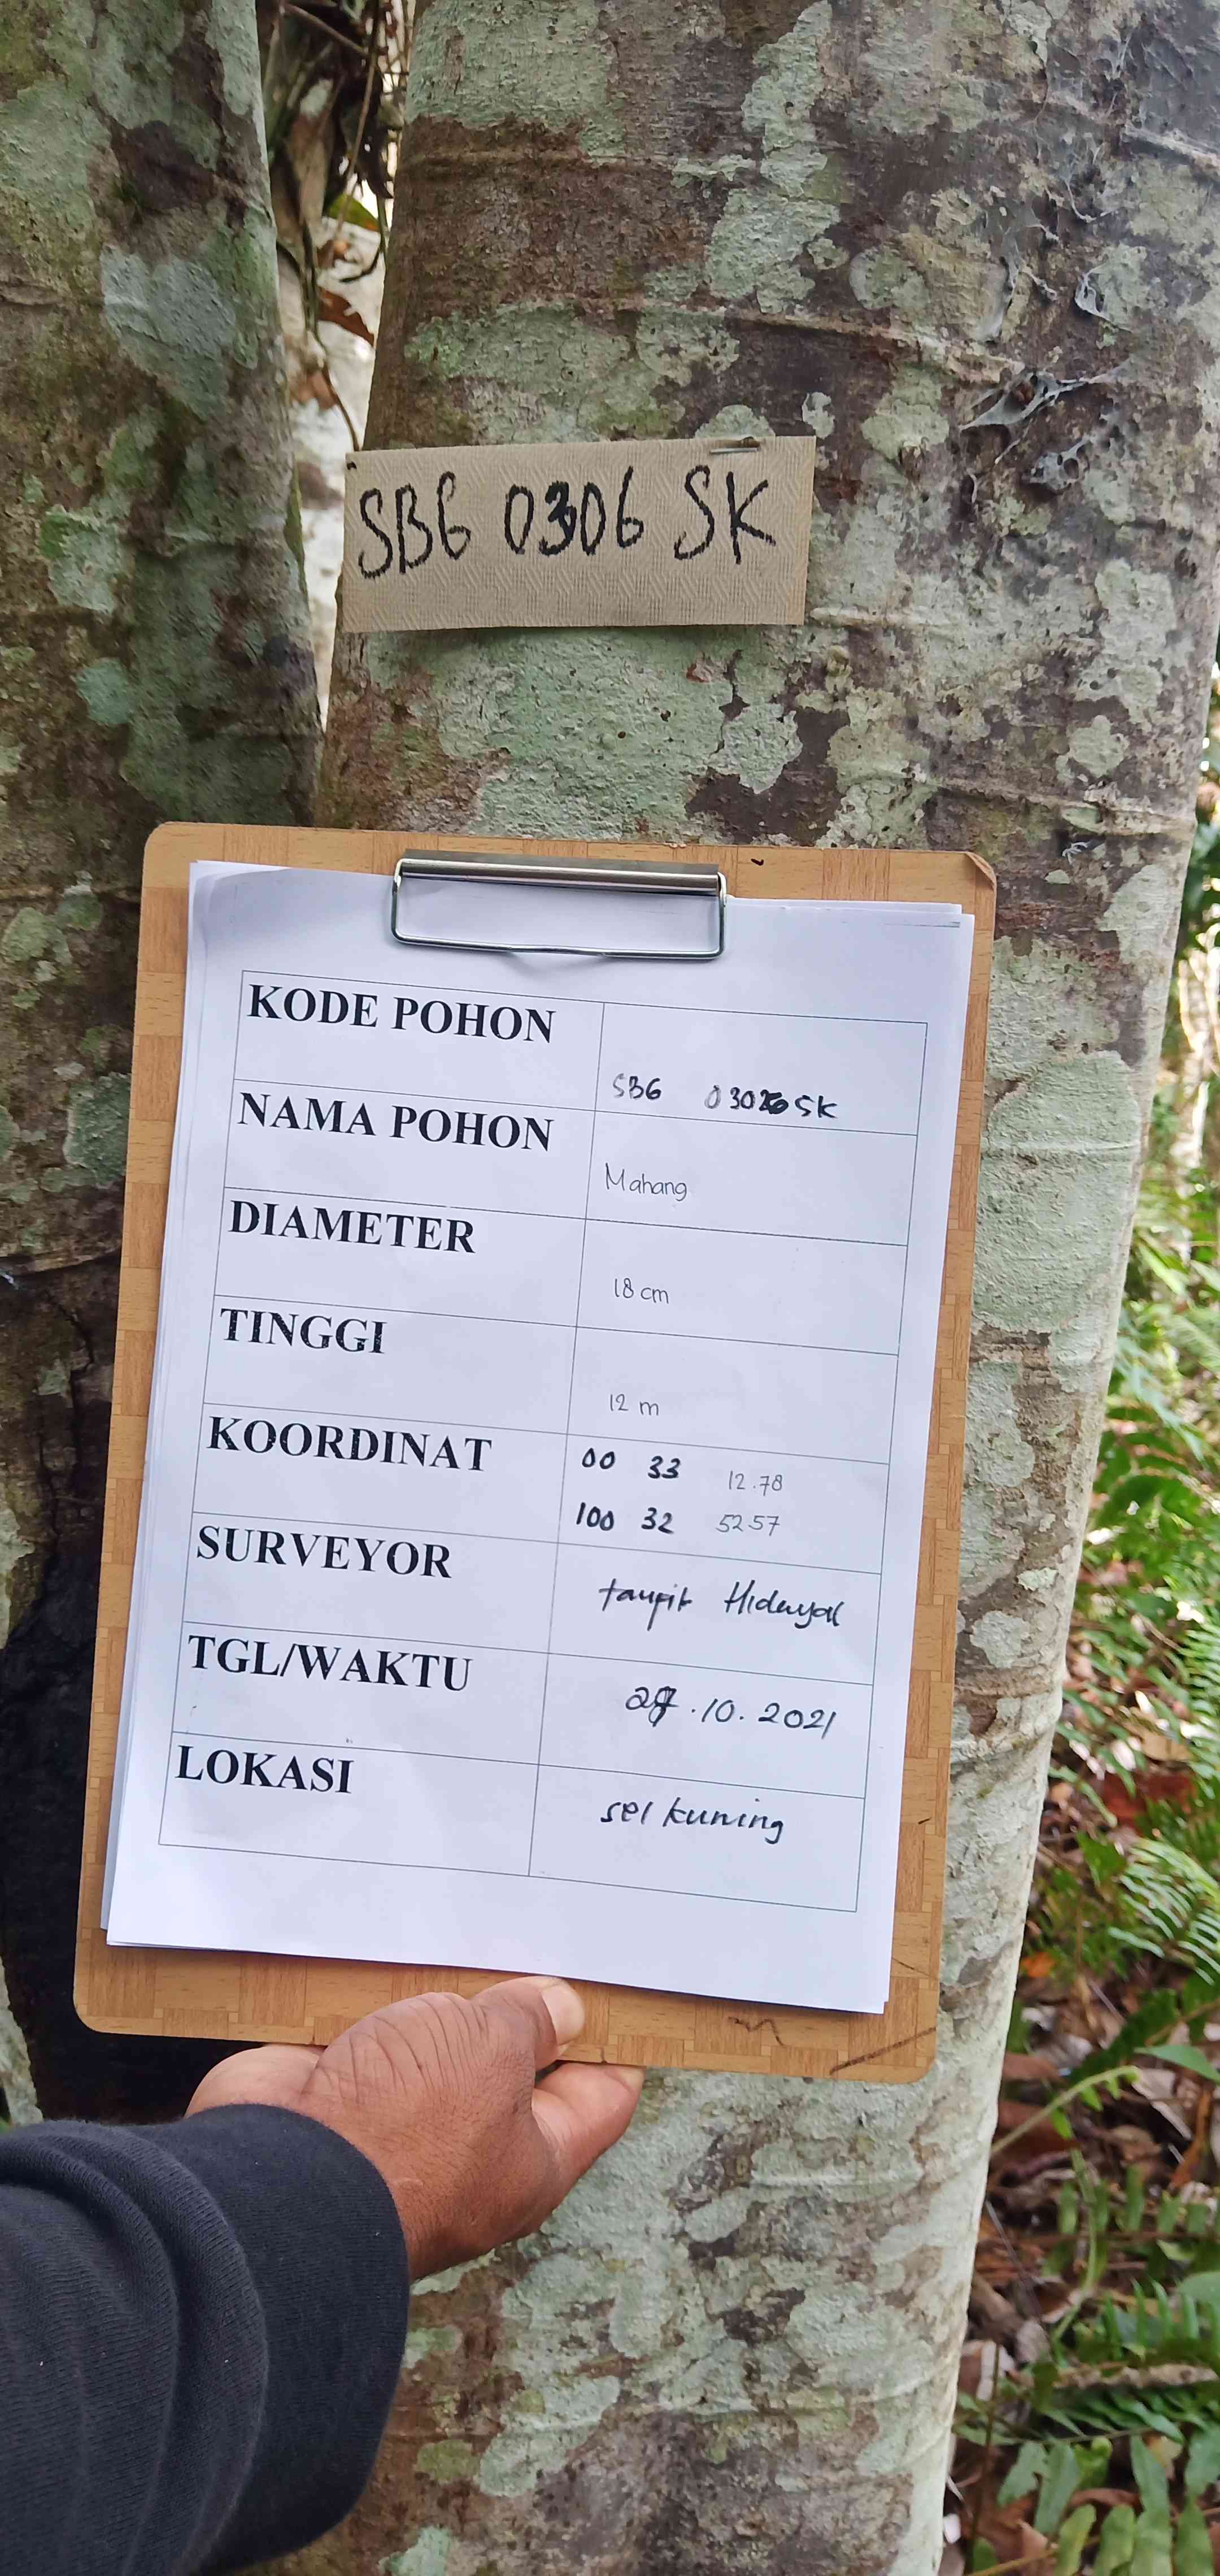 SBG 0306 SK
KODE POHON
SBG 0306 SK
NAMA POHON
Mahang
DIAMETER
18 cm
TINGGI
12 m
KOORDINAT
00 33 12.78
100 32 52.57
SURVEYOR
taupik Hidayat
TGL/WAKTU
27.10.2021
LOKASI
sei kuning